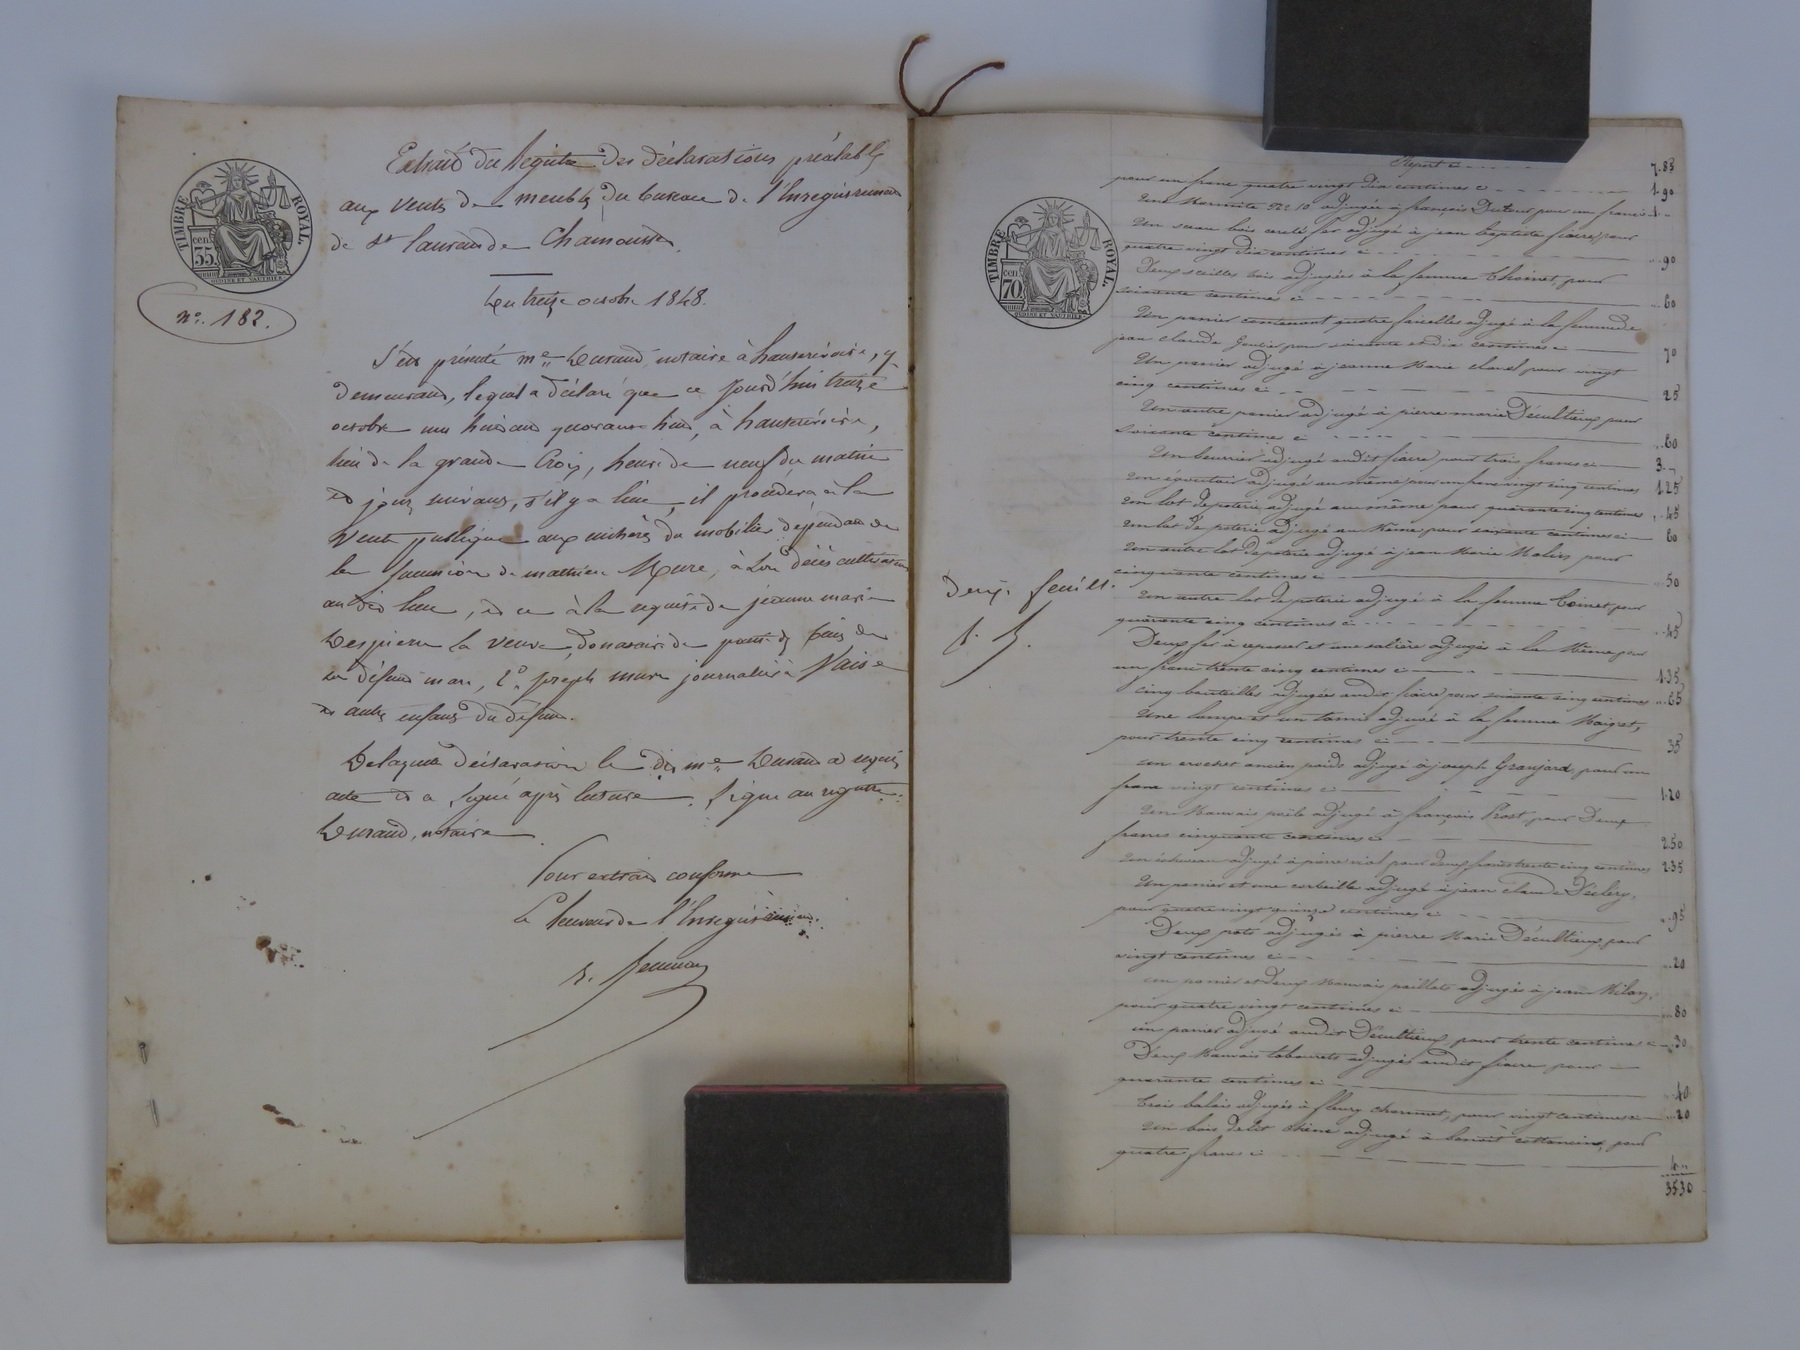 TIMBRE ROYAL
cen. 35.
nº. 182.
Extrait du Registre des déclarations préalables
aux ventes de meubles du bureau de l'Enregistrement
de St Laurent de Chamousset.
Du treize octobre 1848.
S'est présenté me Durand notaire à hauterivoire, y
demeurant, lequel a déclaré que ce jourd'hui treize
octobre mil huit cent quarante huit, à hauterivoire,
lieu de la grande Croix, heure de neuf du matin
et jours suivants, s'il y a lieu, il procédera à la
vente publique aux enchères du mobilier dépendant de
la succession de mathieu Mure, à son décès cultivateur
au dit lieu, et ce à la requête de jeanne marie
Despierre sa veuve, donataire de
son défunt mari, 2º joseph mure journalier à Vaise
et autres enfants du défunt.
De laquelle déclaration le dit me Durand a requis
acte et a signé après lecture. Signé au registre:
Durand, notaire
Pour extrait conforme
Le Receveur de l'Enregistrement.
TIMBRE ROYAL
cen. 70.
Deux. feuill.
Report ci 7.85
pour un franc quatre vingt dix centimes ci 1.90
Une Marmite Nº 10 adjugée à françois Dutour pour un franc ci 1..
Un seau bois cerclé fer adjugé à jean baptiste fiacre, pour
quatre vingt dix centimes ci ..90
Deux seilles bois adjugées à la femme Thoinet, pour
soixante centimes ci ..60
Un panier contenant quatre faisselles adjugé à la femme de
jean Claude pour soixante et dix centimes ci 70
Un panier adjugé à jeanne Marie Clavel pour vingt
cinq centimes ci 25
Un autre panier adjugé à pierre marie Décultieux pour
soixante centimes ci ..60
Un beurrier adjugé audit fiacre pour trois francs ci 3..
Un égouttoir adjugé au même pour un franc vingt cinq centimes 1.25
Un lot de poterie adjugé au même pour quarante cinq centimes ..45
Un lot de poterie adjugé au Même pour soixante centimes ci 60
Un autre lot de poterie adjugé à jean Marie pour
cinquante centimes ci ..50
Un autre lot de poterie adjugé à la femme Coinet, pour
quarante cinq centimes ci ..45
Deux fer à repasser et une salière adjugés à la Même pour
un franc trente cinq centimes ci 1.35
Cinq bouteilles adjugées audit fiacre pour soixante cinq centimes ..65
Une lampe et un tamis adjugé à la femme
pour trente cinq centimes ci 35
Un crochet ancien poids adjugé à joseph Granjard, pour un
franc vingt centimes ci 1.20
Un Mauvais poële adjugé à françois Prost, pour Deux
francs cinquante centimes ci 2.50
Un adjugé à pierre pour deux francs trente cinq centimes 2.35
Un panier et une corbeille adjugés à jean claude
pour quatre vingt quinze centimes ci ..95
Deux pots adjugés à pierre Marie Décultieux, pour
vingt centimes ci ..20
Un panier et deux Mauvais paillats adjugés à jean
pour quatre vingt centimes ci ..80
Un panier adjugé audit Décultieux pour trente centimes ci ..30
Deux Mauvais tabourets adjugés audit fiacre pour
quarante centimes ci ..40
Trois balais adjugés à fleury pour vingt centimes ci ..20
Un bois de lit chêne adjugé à benoit pour
quatre francs ci 4..
35.30